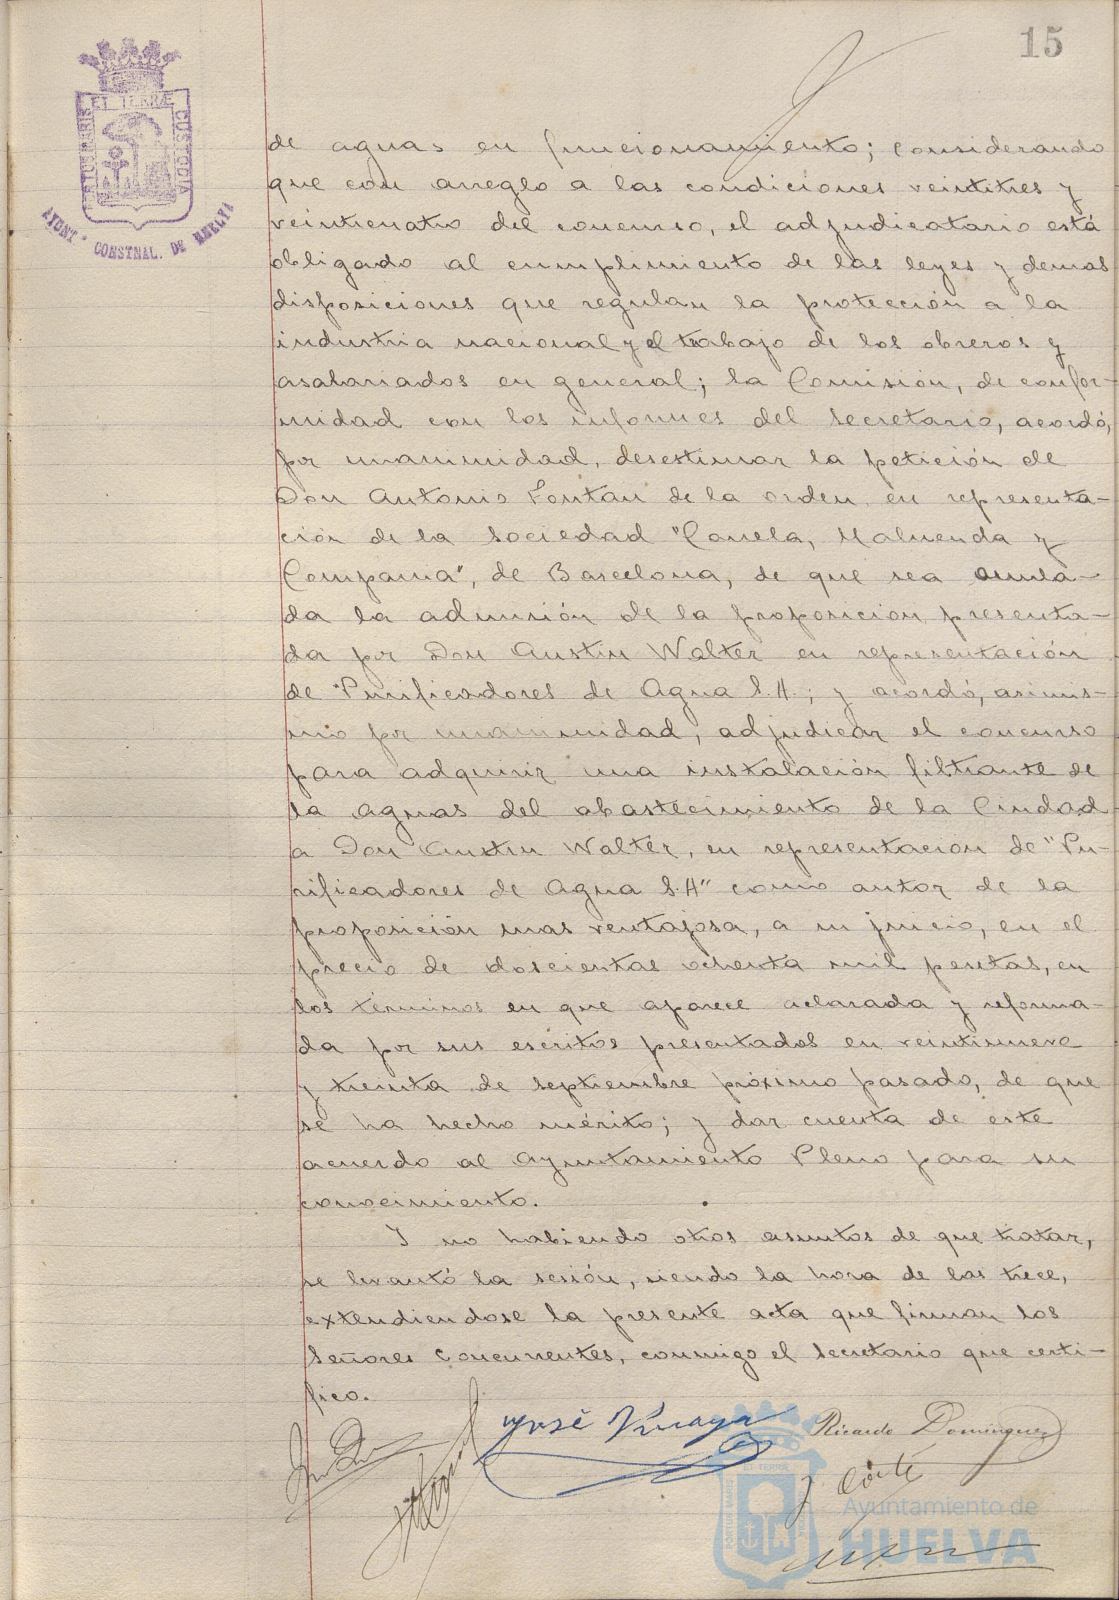 15
PORTUS MARIS ET TERRÆ CUSTODIA
AYUNT.º CONSTNAL. DE HUELVA
de aguas en funcionamiento; considerando
que con arreglo a las condiciones veintitres y
veinticuatro del concurso, el adjudicatario está
obligado al cumplimiento de las leyes y demas
disposiciones que regulan la protección a la
industria nacional y el trabajo de los obreros y
asalariados en general; la Comisión, de confor-
midad con los informes del Secretario, acordó,
por unanimidad, desestimar la petición de
Don Antonio Fontan de la Orden, en representa-
ción de la Sociedad "Canela, Maluenda y
Compania", de Barcelona, de que sea anula-
da la admisión de la proposicion presenta-
da por Don Austin Walter en representación
de "Purificadores de Agua S.A."; y acordó, asimis-
mo por unanimidad, adjudicar el concurso
para adquirir una instalación filtrante de
la aguas del abastecimiento de la Ciudad
a Don Austin Walter, en representación de "Pu-
rificadores de Agua S.A" como autor de la
proposición mas ventajosa, a su juicio, en el
precio de doscientas ochenta mil pesetas, en
los términos en que aparece aclarada y reforma-
da por sus escritos presentados en veintinueve
y treinta de septiembre próximo pasado, de que
se ha hecho mérito; y dar cuenta de este
acuerdo al Ayuntamiento Pleno para su
conocimiento.
Y no habiendo otros asuntos de que tratar,
se levantó la sesión, siendo la hora de las trece,
extendiendose la presente acta que firman los
Señores Concurrentes, conmigo el Secretario que certi-
fico.
José Ricardo Dominguez
J. Corte
Ayuntamiento de
HUELVA